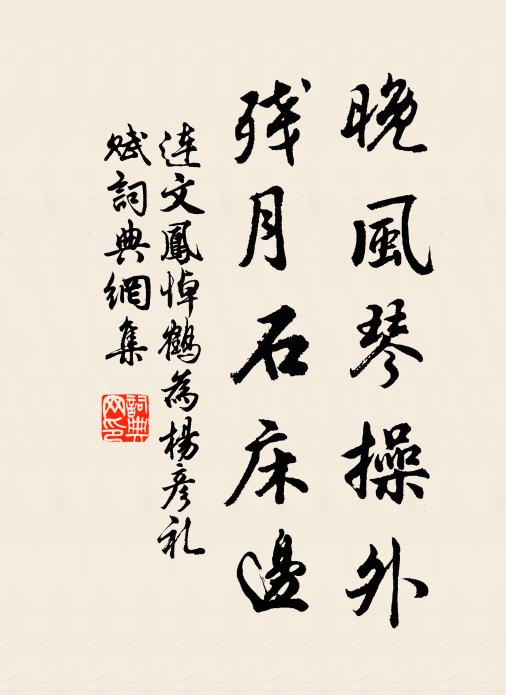 晚風琴操外
残月石床邊
連文鳳悼鶴為楊彥礼
賦詞典網集
詞典網印